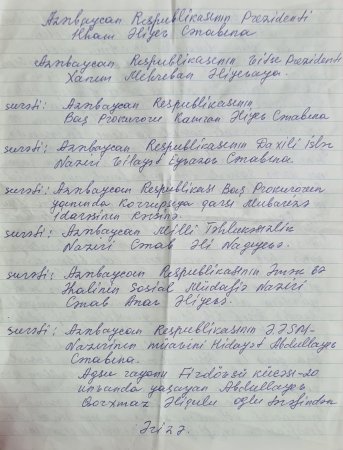 Azərbaycan Respublikasının Prezidenti
İlham Əliyev Cənabına
Azərbaycan Respublikasının Vitse Prezidenti
Xanım Mehriban Əliyevaya.
surəti: Azərbaycan Respublikasının
Baş Prokuroru Kamran Əliyev Cənabına
surəti: Azərbaycan Respublikasının Daxili İşlər
Naziri Vilayət Eyvazov Cənabına.
surəti: Azərbaycan Respublikası Baş Prokurorun
yanında Korrupsiya qarşı Mubarizə
idarəsinin rəisinə
surəti: Azərbaycan Milli Təhlukəsizlik
Naziri Cənab Əli Nağıyevə.
surəti: Azərbaycan Respublikasının Əmək və
Əhalinin Sosial Müdafiə Naziri
Cənab Anar Əliyevə.
surəti: Azərbaycan Respublikasının Ə.Ə.S.M-
Nazirinin müavini Hidayət Abdullayev
Cənabına.
Ağsu rayonu Firdovsü küçəsi-20
ünvanda yaşayan Abdullayev
Qorxmaz Əliqulu oğlu tərəfindən
Ərizə.